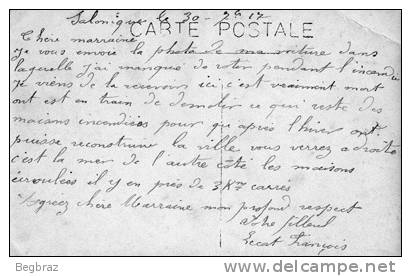 Salonique le 30 - 17
CARTE POSTALE
Chère marraine
je vous envoie la photo de ma voiture dans
laquelle j'ai manqué de roter pendant l'incendie
je viens de la recevoir ici c'est vraiment mort
ont est en train de demolir ce qui reste des
maisons incendiées pour qu'après l'hiver ont
puisse reconstruire la ville vous verrez a droite
c'est la mer de l'autre côté les maisons
écroulées il y en près de 3 Km carrés
Agreez chère Marraine mon profond respect
votre filleul
Lecat François
Begbraz
www.delcampe.net